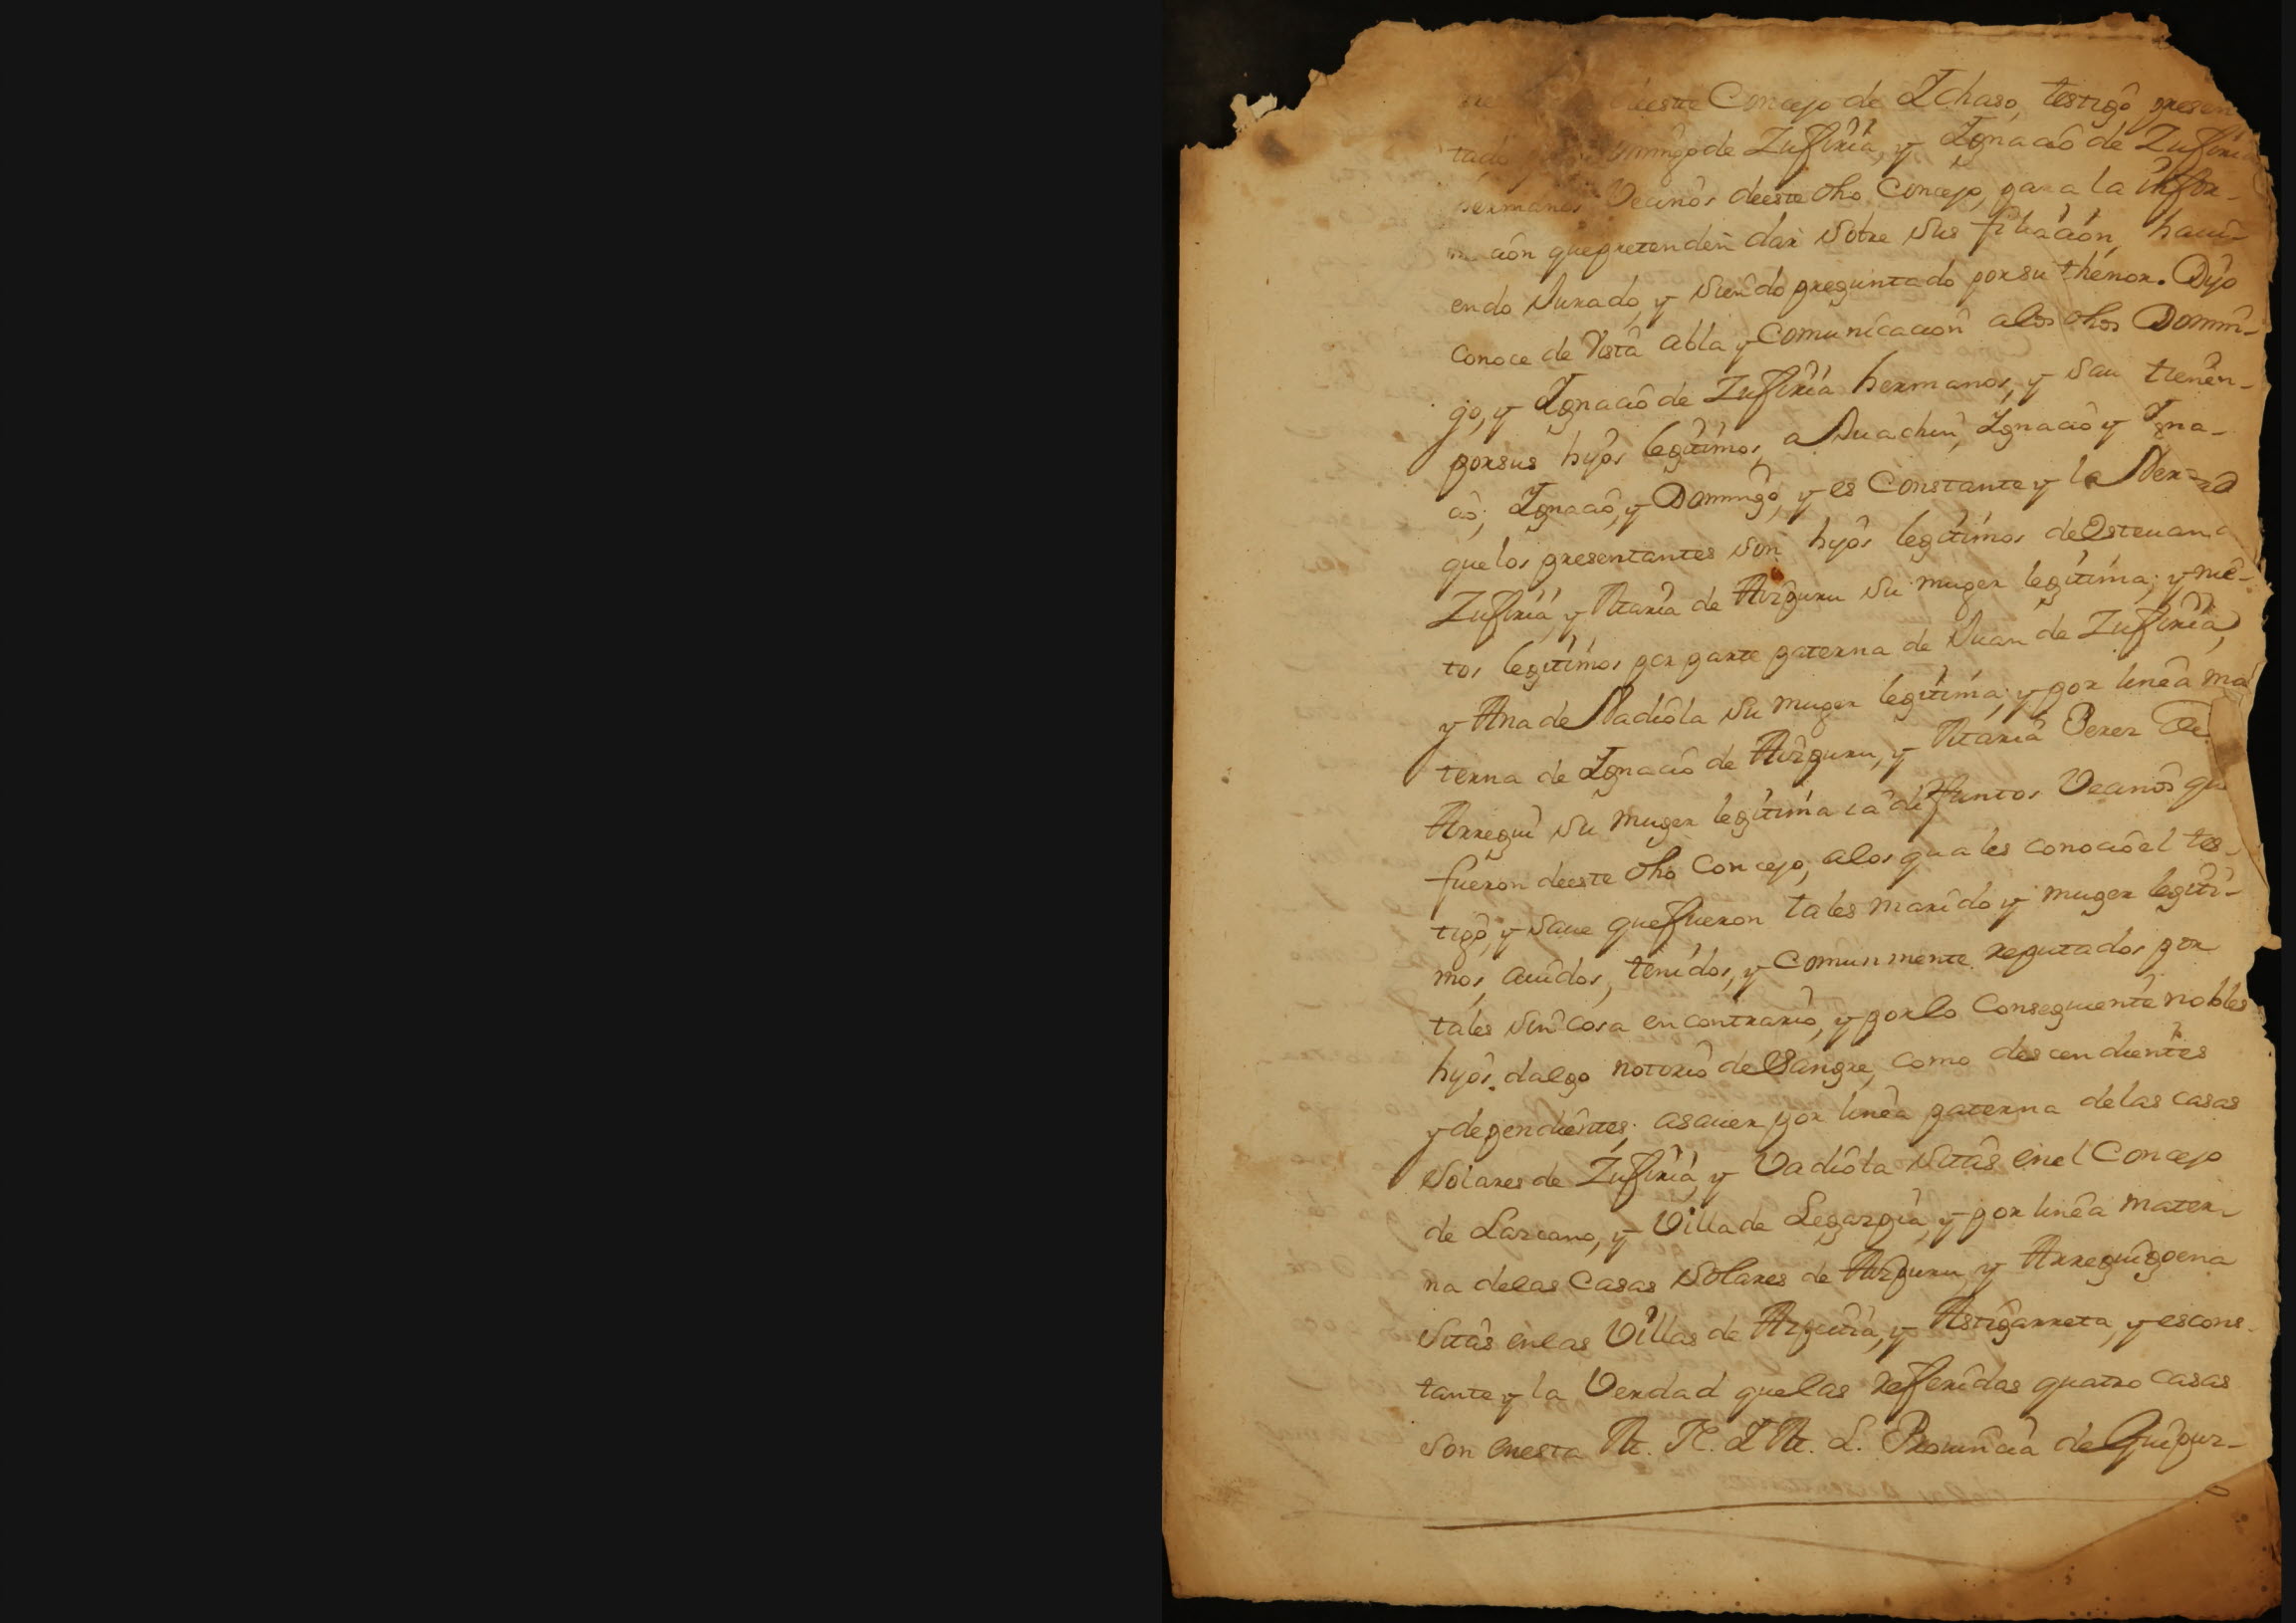 deeste Concejo de Ichaso, testigo presen
tado Domingo de Zufiria, y Ignacio de Zufiria
hermanos Vecinos deeste dho Concejo, para la infor-
cion quepretenden dar sobre sus filiacion, haui-
endo Jurado, y siendo preguntado porsu thenor. Dijo
conoce de Vista abla y Comunicacion alos dhos Domin-
go, y Ignacio de Zufiria hermanos, y saue tienen
porsus hijos legitimos, a Juachin, Ignacio y Igna-
cio, Ignacio, y Domingo, y es Constante y la Verdad
quelos presentantes son hijos legitimos de Esteuan
Zufiria, y Maria de Aizpuru su muger legitima; y nie-
tos legitimos por parte paterna de Juan de Zufiria,
y Ana de Vadiola su muger legitima; y por linea ma
terna de Ignacio de Aizpuru, y Maria Perez de
Arregui su muger legitima ia difuntos Vecinos que
fueron deeste dho Concejo, alos quales conocio el tes-
tigo, y saue quefueron tales marido y muger legiti-
mos, auidos, tenidos, y Comunmente reputados por
tales sin cosa en contrario, y porlo Conseguiente nobles
hijos.dalgo notorio de Sangre, como descendientes
y dependientes; asauer por linea paterna delas casas
Solares de Zufiria, y Vadiola sitas enel Concejo
de Lazcano, y Villa de Legazpia, y por linea mater-
na delas Casas Solares de Aizpuru, y Arreguigoena
sitas enlas Villas de Azpeitia, y Astigarreta, y escons-
tante y la Verdad quelas refferidas quatro casas
son enesta M. N. I M. L. Prouincia de Guipuz-